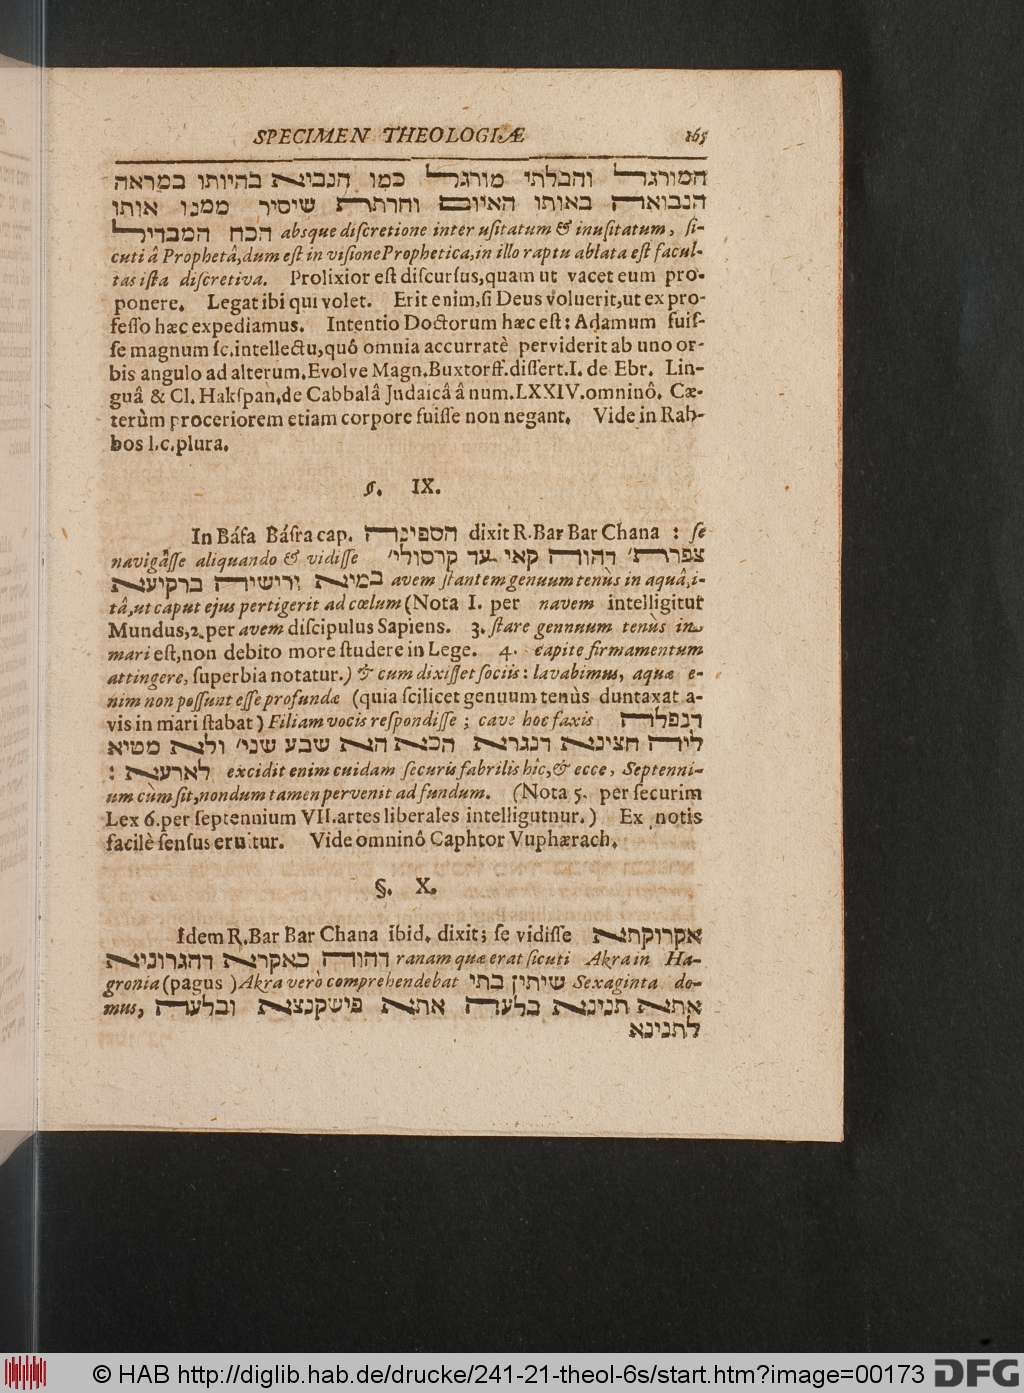 SPECIMEN THEOLOGIÆ 165
המורגל והבלתי מורגל כמו הנביא בהיותו במראה
הנבואה באותו האיום וחרדת שיסיר ממנו אותו
הכח המבדיל absque diſcretione inter uſitatum & inuſitatum, ſi-
cuti â Prophetâ, dum eſt in viſione Prophetica, in illo raptu ablata eſt facul-
tas iſta diſcretiva. Prolixior eſt diſcurſus, quam ut vacet eum pro-
ponere. Legat ibi qui volet. Erit enim, ſi Deus voluerit, ut ex pro-
feſſo hæc expediamus. Intentio Doctorum hæc eſt: Adamum fuiſ-
ſe magnum ſc. intellectu, quô omnia accurratè perviderit ab uno or-
bis angulo ad alterum. Evolve Magn. Buxtorff. diſſert. I. de Ebr. Lin-
guâ & Cl. Hakſpan, de Cabbalâ Judaicâ â num. LXXIV. omninô. Cæ-
terùm proceriorem etiam corpore fuiſſe non negant. Vide in Rab-
bos l. c. plura.
§. IX.
In Báſa Báſra cap. הספינה dixit R. Bar Bar Chana : ſe
navigâſſe aliquando & vidiſſe צפרת' דהוה קאי עד קרסולי'
במיא ורישיה ברקיעא avem ſtantem genuum tenùs in aquâ, i-
tâ, ut caput ejus pertigerit ad cœlum (Nota I. per navem intelligitur
Mundus, 2. per avem diſcipulus Sapiens. 3. ſtare gennuum tenùs in
mari eſt, non debito more ſtudere in Lege. 4. capite firmamentum
attingere, ſuperbia notatur.) & cum dixiſſet ſociis: lavabimus, aquæ e-
nim non poſſunt eſſe profundæ (quia ſcilicet genuum tenùs duntaxat a-
vis in mari ſtabat) Filiam vocis reſpondiſſe; cave hoc faxis דנפלה
ליה חצינא דנגרא הכא הא שבע שני' ולא מטיא
לארעא : excidit enim cuidam ſecuris fabrilis hîc, & ecce, Septenni-
um cùm ſit, nondum tamen pervenit ad fundum. (Nota 5. per ſecurim
Lex 6. per ſeptennium VII. artes liberales intelligutnur.) Ex notis
facilè ſenſus eruitur. Vide omninô Caphtor Vuphærach.
§. X.
Idem R. Bar Bar Chana ibid. dixit; ſe vidiſſe אקרוקתא
דהוה כאקרא דהגרוניא ranam quæ erat ſicuti Akra in Ha-
gronia (pagus) Akra verò comprehendebat שיתין בתי Sexaginta do-
mus, אתא תנינא בלעה אתא פישקנצא ובלעה
לתנינא
© HAB http://diglib.hab.de/drucke/241-21-theol-6s/start.htm?image=00173 DFG